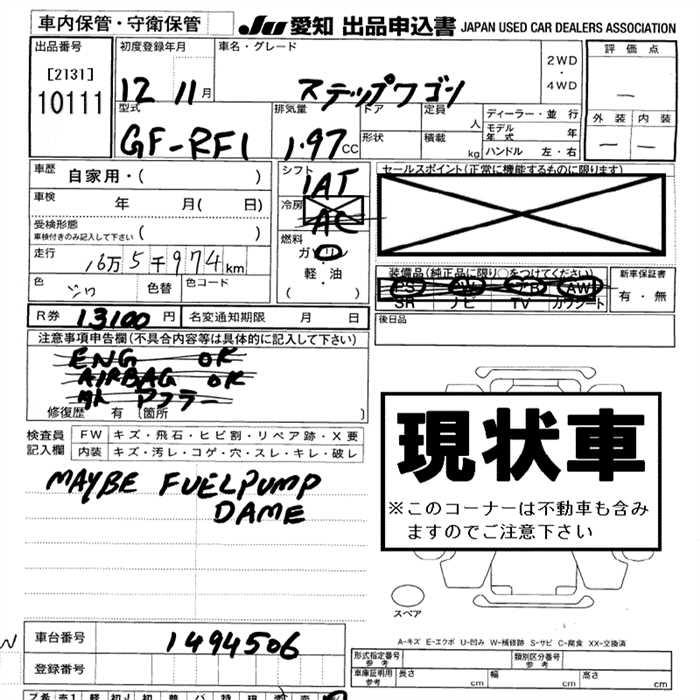 車内保管・守衛保管
JU 愛知 出品申込書 JAPAN USED CAR DEALERS ASSOCIATION
出品番号
[2131]
10111
初度登録年月
12 11月
車名・グレード
ステップワゴン
2WD
・
4WD
評価点
—
外装 内装
— —
型式
GF-RF1
排気量
1.97CC
ドア
形状
定員 人
積載 kg
ディーラー・並行
モデル年式 年
ハンドル 左・右
車歴 自家用・( )
車検 年 月( 日)
受検形態
車検付きのみ記入して下さい ( )
走行 16万5千974km
色 色替 色コード
シフト
IAT
冷房
AC
燃料
ガソリン
・
軽・油
( )
セールスポイント(正常に機能するものに限ります)
装備品(純正品に限り○をつけてください)
PS PW AB AW
SR ナビ TV カワシート
新車保証書
有・無
後日品
R券 13100円 名変通知期限 月 日
注意事項申告欄(不具合内容等は具体的に記入して下さい)
ENG OK
AIRBAG OK
マフラー
修復歴 有 (箇所 )
検査員 FW キズ・飛石・ヒビ割・リペア跡・X要
記入欄 内装 キズ・汚レ・コゲ・穴・スレ・キレ・破レ
MAYBE FUELPUMP
DAME
現状車
※このコーナーは不動車も含み
ますのでご注意下さい
スペア
A-キズ E-エクボ U-凹み W-補修跡 S-サビ C-腐食 XX-交換済
車台番号 1494506
登録番号
形式指定番号 参考 類別区分番号 参考
車庫証明用 参考 長さ cm 幅 cm 高さ cm